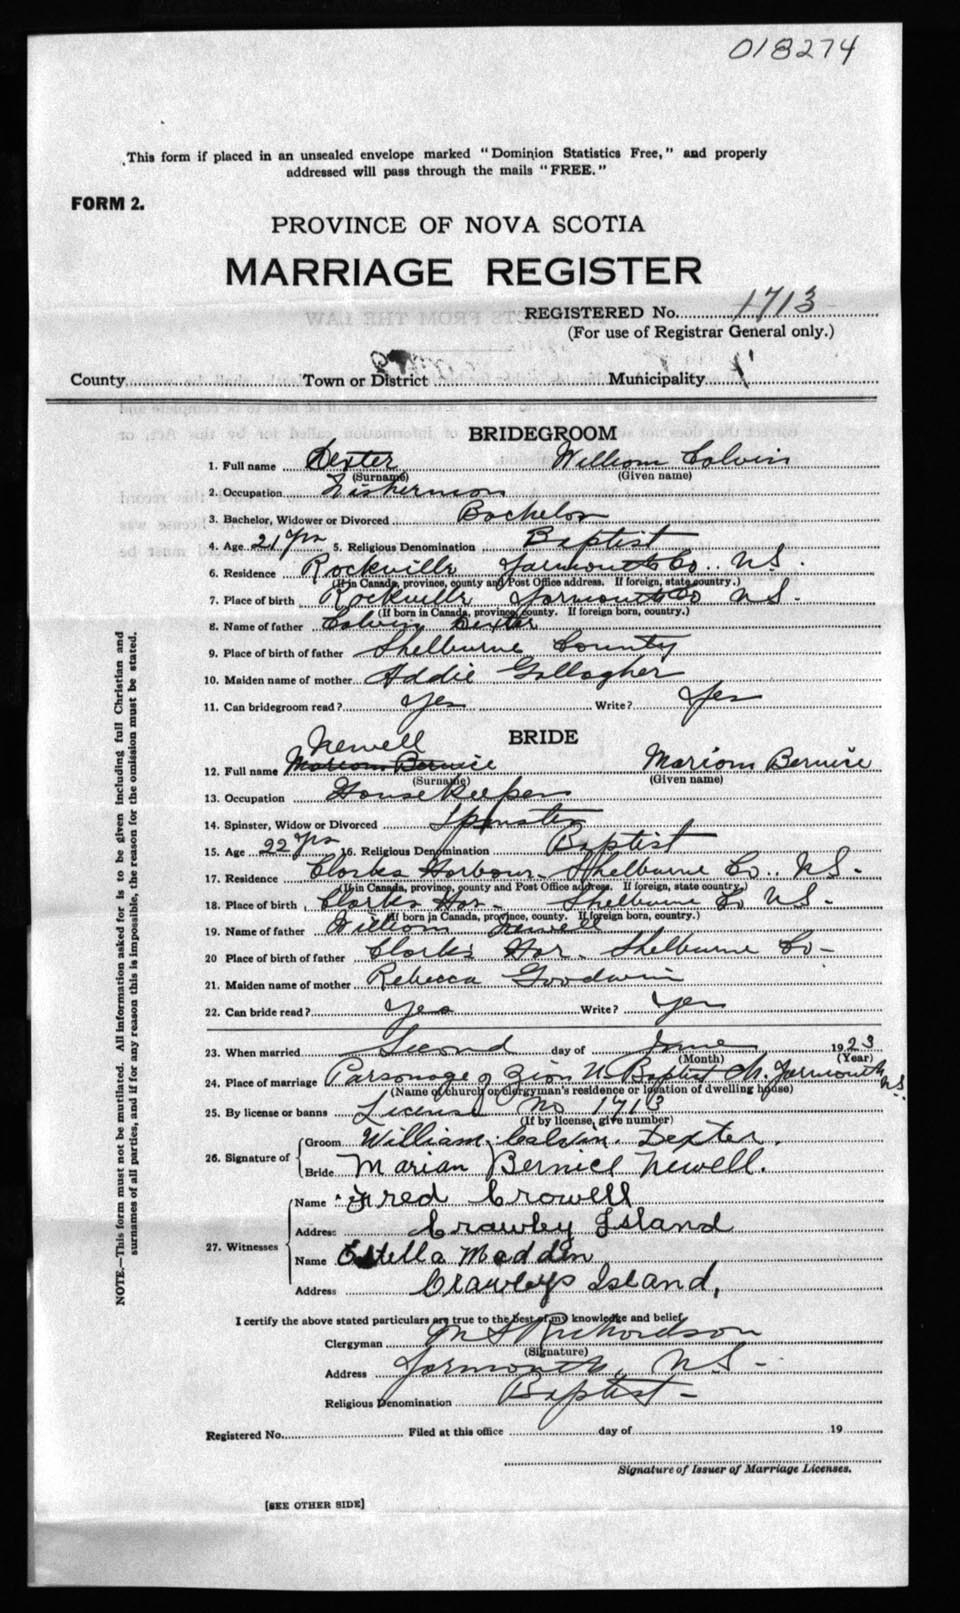 018274
This form if placed in an unsealed envelope marked "Dominion Statistics Free," and properly
addressed will pass through the mails "FREE."
FORM 2.
PROVINCE OF NOVA SCOTIA
MARRIAGE REGISTER
REGISTERED No. 1713
(For use of Registrar General only.)
County Town or District Municipality
BRIDEGROOM
1. Full name Dexter William Colvin
(Surname) (Given name)
2. Occupation Fisherman
3. Bachelor, Widower or Divorced Bachelor
4. Age 21 yrs 5. Religious Denomination Baptist
6. Residence Rockville Yarmouth Co., N.S.
(If in Canada, province, county and Post Office address. If foreign, state country.)
7. Place of birth Rockville Yarmouth Co N S.
(If born in Canada, province, county. If foreign born, country.)
8. Name of father Colvin Dexter
9. Place of birth of father Shelburne County
10. Maiden name of mother Addie Gallagher
11. Can bridegroom read? Yes Write? Yes
BRIDE
Newell
12. Full name Mariom Bernice Mariom Bernice
(Surname) (Given name)
13. Occupation House Keeper
14. Spinster, Widow or Divorced Spinster
15. Age 22 yrs 16. Religious Denomination Baptist
17. Residence Clarks Harbour. Shelburne Co., N.S.
(If in Canada, province, county and Post Office address. If foreign, state country.)
18. Place of birth Clarks Har. Shelburne Co N S.
(If born in Canada, province, county. If foreign born, country.)
19. Name of father William Newell
20 Place of birth of father Clark's Har. Shelburne Co
21. Maiden name of mother Rebecca Goodwin
22. Can bride read? Yes Write? Yes
23. When married Second day of June 1923
(Month) (Year)
24. Place of marriage Parsonage of Zion U. Baptist Ch. Yarmouth N.S.
(Name of church or clergyman's residence or location of dwelling house)
25. By license or banns License No 1713
(If by license, give number)
26. Signature of Groom William Calvin Dexter.
Bride Marian Bernice Newell.
27. Witnesses Name Fred Crowell
Address Crawley Island
Name Estella Madden
Address Crawleys Island,
I certify the above stated particulars are true to the best of my knowledge and belief.
Clergyman M S Richardson
(Signature)
Address Yarmouth, N.S.
Religious Denomination Baptist
Registered No. Filed at this office day of 19
Signature of Issuer of Marriage Licenses.
[SEE OTHER SIDE]
NOTE.—This form must not be mutilated. All information asked for is to be given including full Christian and
surnames of all parties, and if for any reason this is impossible, the reason for the omission must be stated.